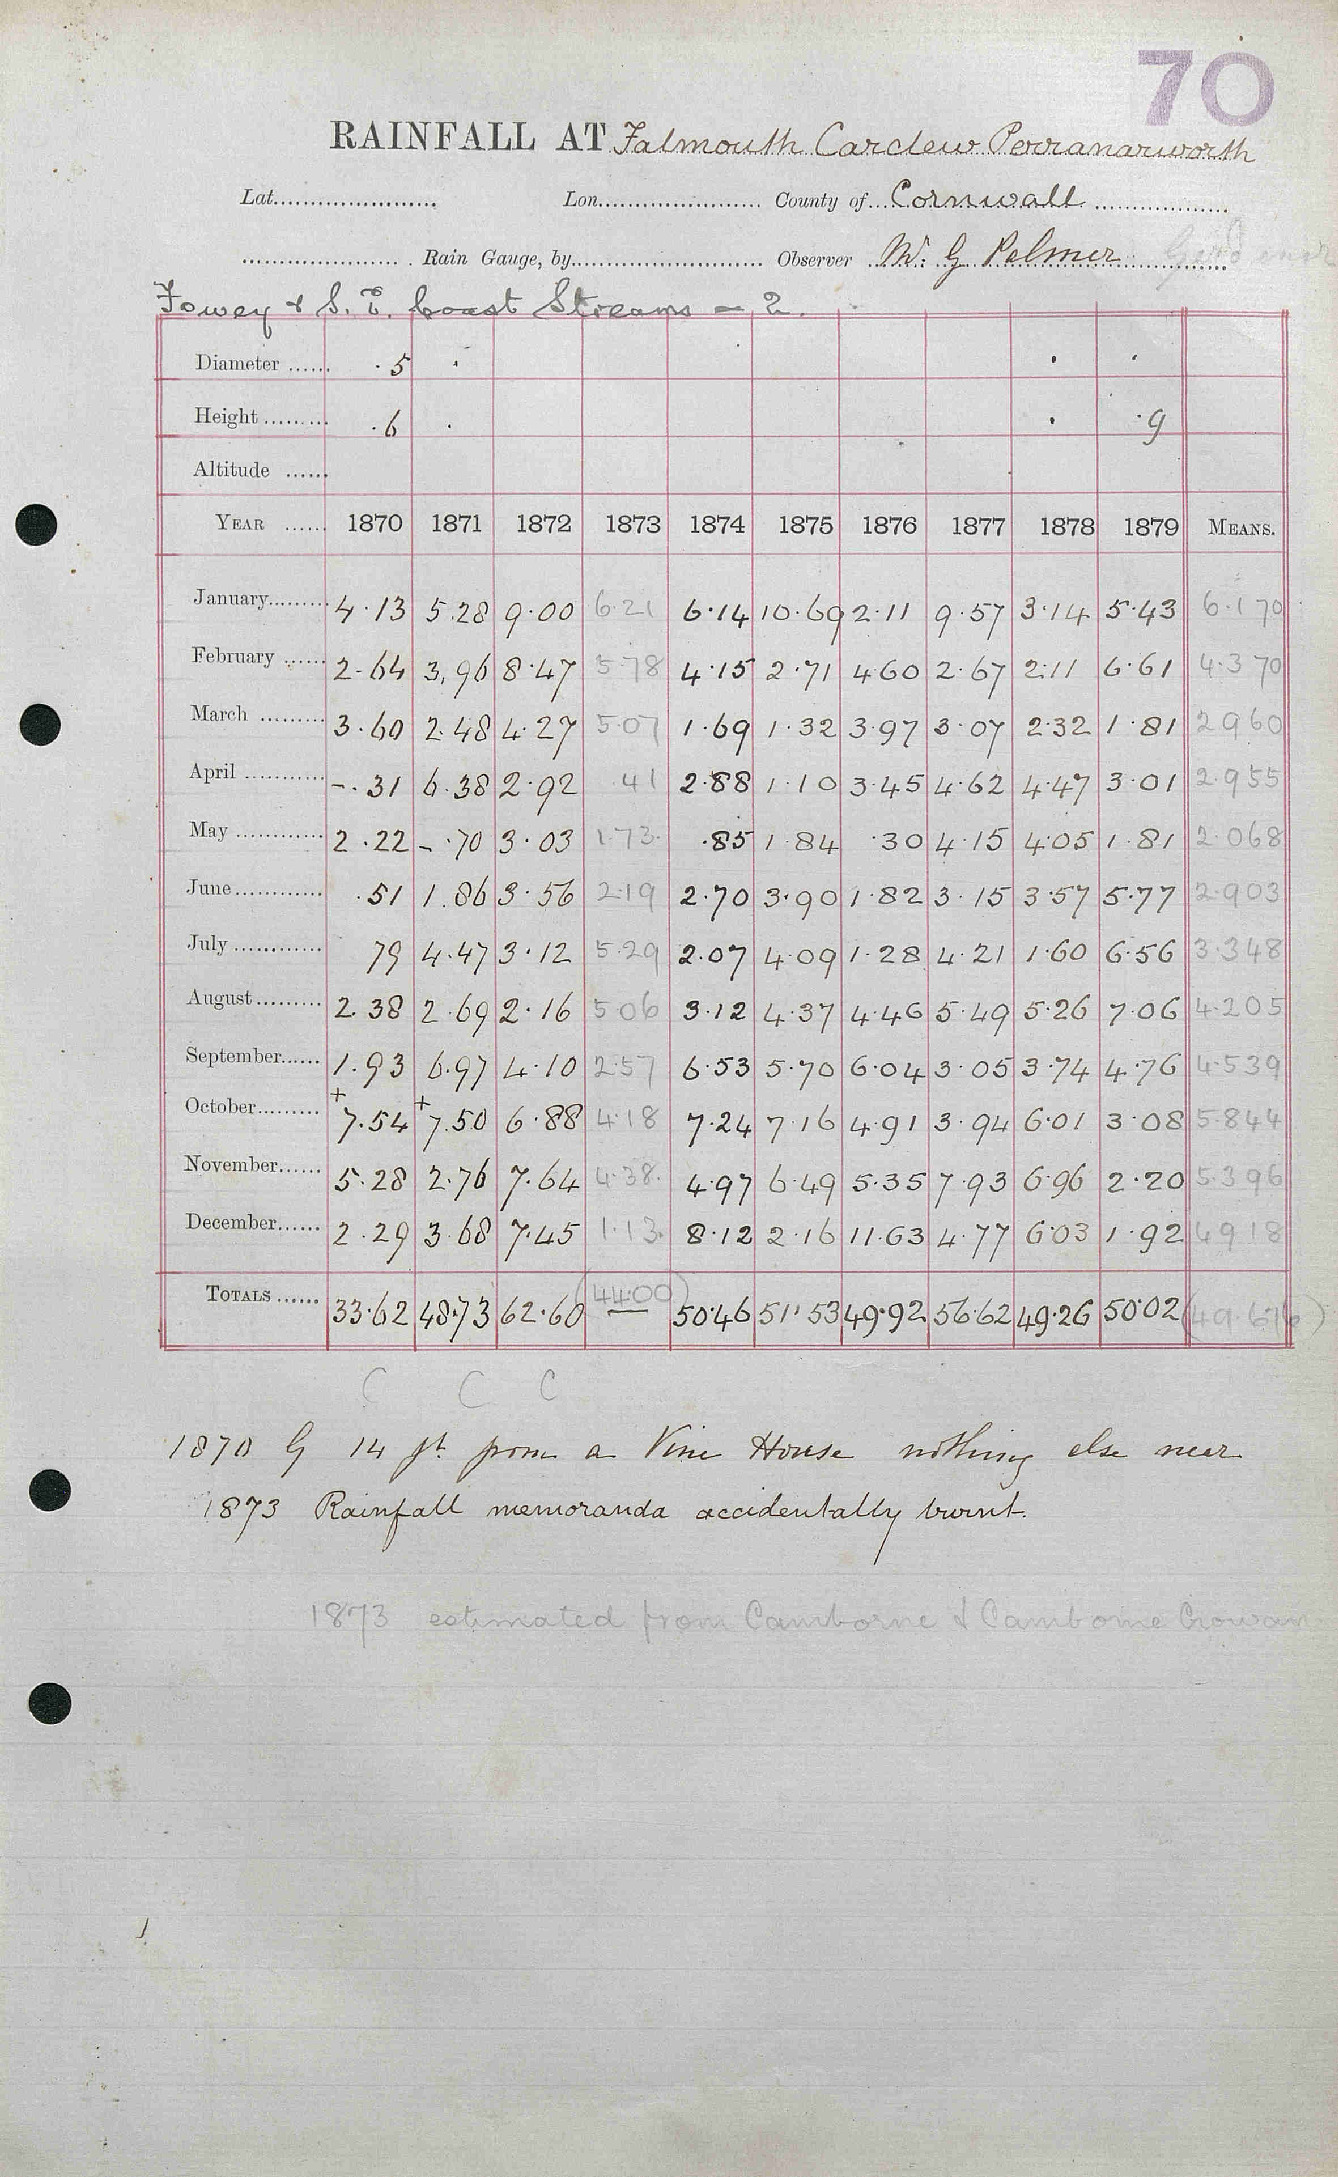 70
RAINFALL AT Falmouth Cardew Perranarworth
Lat. Lon. County of Cornwall
Rain Gauge, by Observer W. G Palmer Gard
Fowey & S. E. Coast Streams - 2.
Diameter ...... ·5
Height ......... ·6 ·9
Altitude ......
YEAR ...... 1870 1871 1872 1873 1874 1875 1876 1877 1878 1879 MEANS.
January......... 4·13 5.28 9·00 6·21 6·14 10·69 2·11 9·57 3·14 5·43 6·170
February ...... 2·64 3.96 8·47 5·78 4·15 2·71 4·60 2·67 2·11 6·61 4·370
March ......... 3·60 2·48 4·27 5·07 1·69 1·32 3·97 3·07 2·32 1·81 2·960
April ............ -·31 6·38 2·92 ·41 2·88 1·10 3·45 4·62 4·47 3·01 2·955
May ............ 2·22 -·70 3·03 1·73 ·85 1·84 ·30 4·15 4·05 1·81 2·068
June............ ·51 1.86 3·56 2·19 2·70 3·90 1·82 3·15 3·57 5·77 2·903
July ............ 79 4·47 3·12 5·29 2·07 4·09 1·28 4·21 1·60 6·56 3·348
August......... 2.38 2·69 2·16 5·06 3·12 4·37 4·46 5·49 5·26 7·06 4·205
September...... 1.93 6·97 4·10 2·57 6·53 5·70 6·04 3·05 3·74 4·76 4·539
October......... +7.54 +7.50 6·88 4·18 7·24 7·16 4·91 3·94 6·01 3·08 5·844
November...... 5·28 2·76 7·64 4·38 4·97 6·49 5·35 7·93 6·96 2·20 5·396
December...... 2·29 3·68 7·45 1·13 8·12 2·16 11·63 4·77 6·03 1·92 4·918
TOTALS ...... 33·62 48·73 62·60 (44·00) 50·46 51·53 49·92 56·62 49·26 50·02 (49·676)
C C C
1870 G 14 ft from a Vine House nothing else near
1873 Rainfall memoranda accidentally burnt.
1873 estimated from Camborne & Camborne Crowan